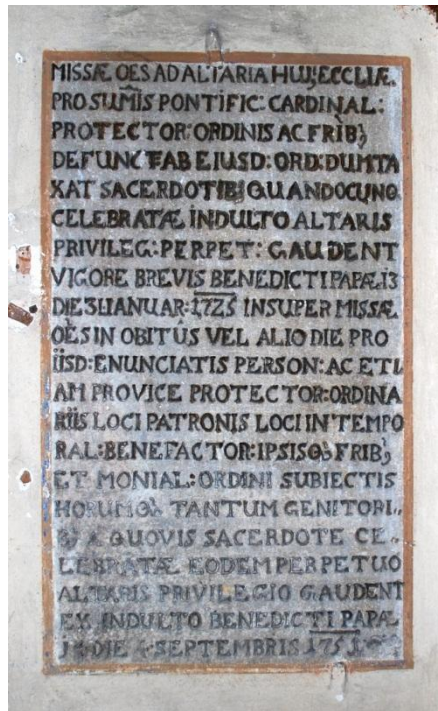 MISSÆ OES AD ALTARIA HUJ; ECCLIÆ.
PRO SUMIS PONTIFIC: CARDINAL:
PROTECTOR: ORDINIS AC FRIB;
DEFUNCT AB EIUSD: ORD: DUMTA
XAT SACERDOTIB; QUANDOCUNQ.
CELEBRATÆ INDULTO ALTARIS
PRIVILEG: PERPET: GAUDENT
VIGORE BREVIS BENEDICTI PAPÆ 13
DIE 31 IANUAR: 1725 INSUPER MISSÆ
OES IN OBITÛS VEL ALIO DIE PRO
IISD: ENUNCIATIS PERSON: AC ETI
AM PROVICE PROTECTOR: ORDINA
RIIS LOCI PATRONIS LOCI IN TEMPO
RAL: BENEFACTOR: IPSISQ; FRIB;
ET MONIAL: ORDINI SUBIECTIS
HORUMQ; TANTUM GENITORI..
B; A QUOVIS SACERDOTE CE-
LEBRATÆ EODEM PERPETUO
ALTARIS PRIVILEGIO GAUDENT
EX INDULTO BENEDICTI PAPÆ
DIE 4 SEPTEMBRIS 1751